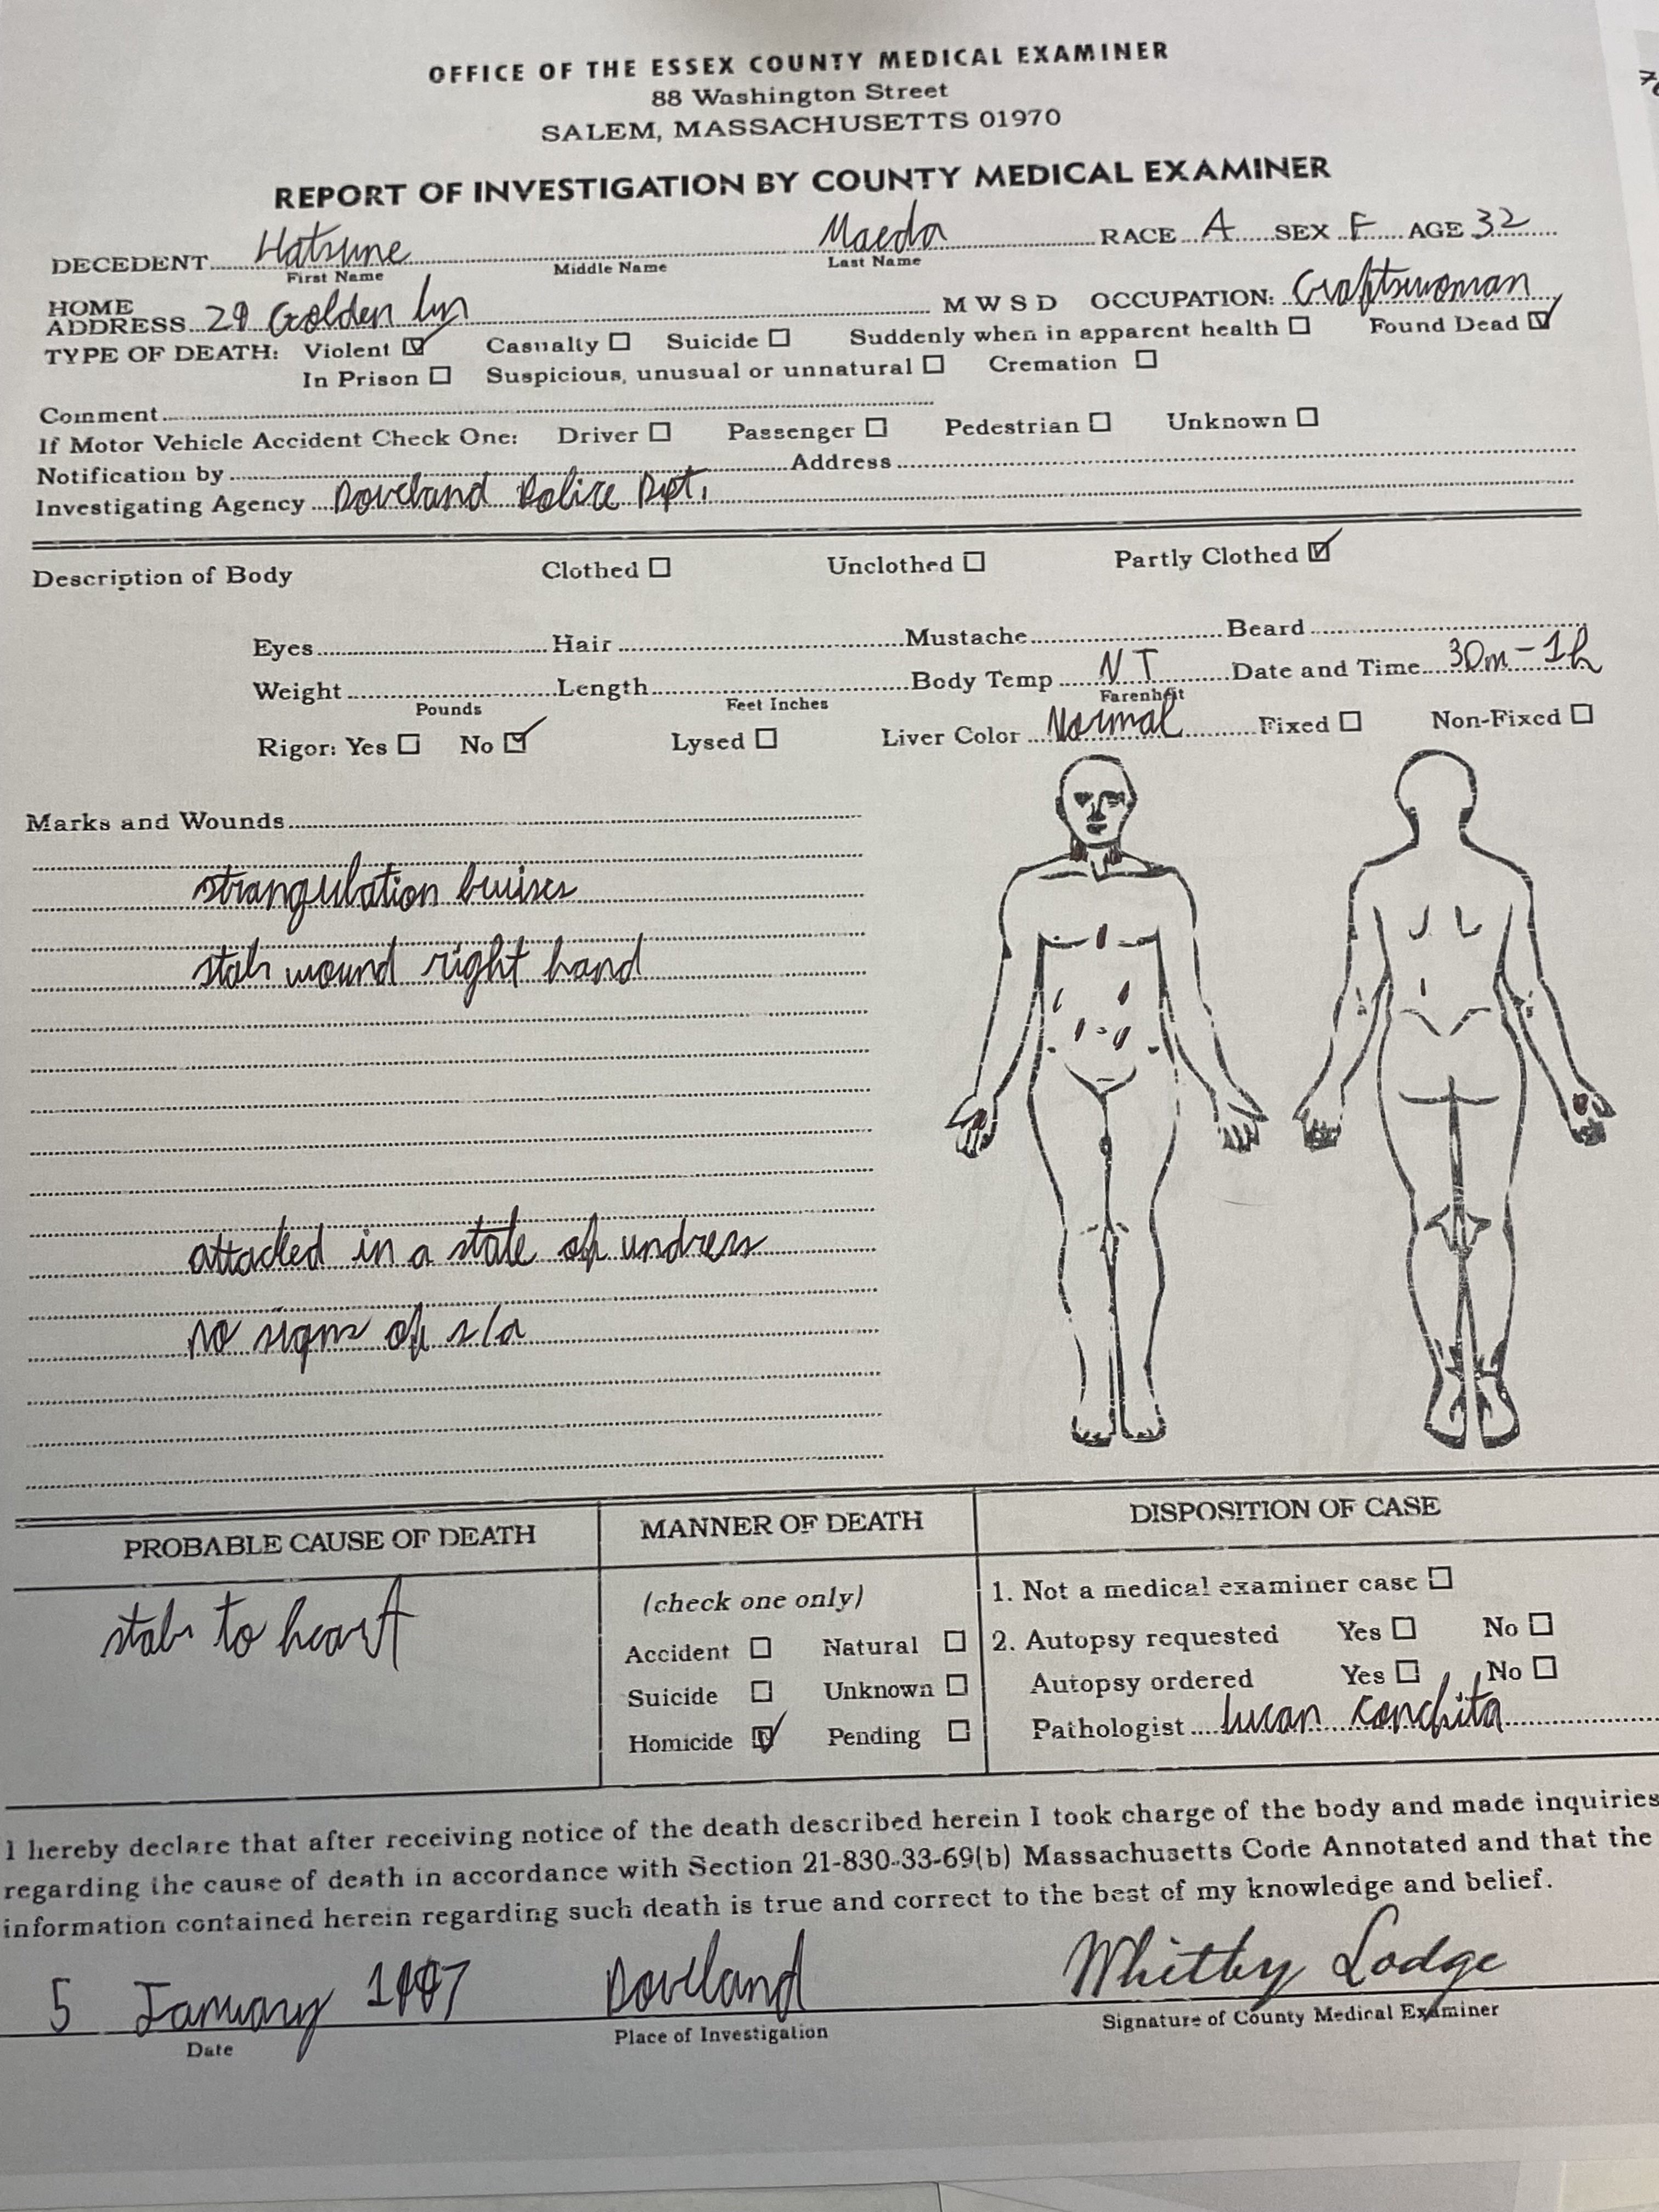 OFFICE OF THE ESSEX COUNTY MEDICAL EXAMINER
88 Washington Street
SALEM, MASSACHUSETTS 01970
REPORT OF INVESTIGATION BY COUNTY MEDICAL EXAMINER
DECEDENT Hatsune Maeda RACE A SEX F AGE 32
First Name Middle Name Last Name
HOME ADDRESS 29 Golden M W S D OCCUPATION: Craftswoman
TYPE OF DEATH: Violent ☑ Casualty ☐ Suicide ☐ Suddenly when in apparent health ☐ Found Dead ☑
In Prison ☐ Suspicious, unusual or unnatural ☐ Cremation ☐
Comment
If Motor Vehicle Accident Check One: Driver ☐ Passenger ☐ Pedestrian ☐ Unknown ☐
Notification by Address
Investigating Agency Doveland Police Dpt.
Description of Body Clothed ☐ Unclothed ☐ Partly Clothed ☑
Eyes Hair Mustache Beard
Weight Length Body Temp NT Date and Time 30m-1h
Pounds Feet Inches Farenheit
Rigor: Yes ☐ No ☑ Lysed ☐ Liver Color Normal Fixed ☐ Non-Fixed ☐
Marks and Wounds
strangulation bruises
stab wound right hand
attacked in a state of undress
no signs of s/a
PROBABLE CAUSE OF DEATH
stab to heart
MANNER OF DEATH
(check one only)
Accident ☐ Natural ☐
Suicide ☐ Unknown ☐
Homicide ☑ Pending ☐
DISPOSITION OF CASE
1. Not a medical examiner case ☐
2. Autopsy requested Yes ☐ No ☐
Autopsy ordered Yes ☐ No ☐
Pathologist conchita
I hereby declare that after receiving notice of the death described herein I took charge of the body and made inquiries
regarding the cause of death in accordance with Section 21-830-33-69(b) Massachusetts Code Annotated and that the
information contained herein regarding such death is true and correct to the best of my knowledge and belief.
5 January Doveland Whitby Lodge
Date Place of Investigation Signature of County Medical Examiner